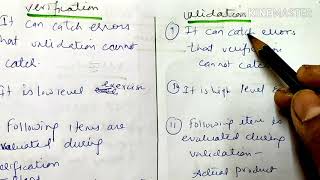 verification
It can catch errors
that validation cannot
catch.
It is low level exercise
Following items are
evaluated during
verification
validation
KINEMASTER
① It can catch errors
that verification
cannot catch
⑩ It is high level
⑪ Following items
evaluated during
validation -
Actual product